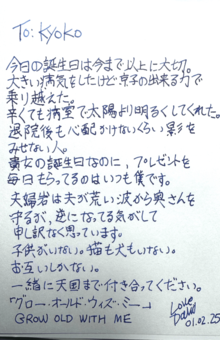 To: KYOKO
今日の誕生日は今まで以上に大切。
大きい病気をしたけど京子の出来る力で
乗り越えた。
辛くても病室で太陽より明るくしてくれた。
退院後も心配かけないくらい影を
みせない人。
貴女の誕生日なのに、プレゼントを
毎日もらってるのはいつも僕です。
夫婦岩は夫が荒い波から奥さんを
守るが、逆になってる気がして
申し訳なく思っています。
子供がいない。猫も犬もいない。
お互いしかない。
一緒に天国まで付き合ってください。
「グロー・オールド・ウィズ・ミー」
GROW OLD WITH ME
Love
David
01.02.25